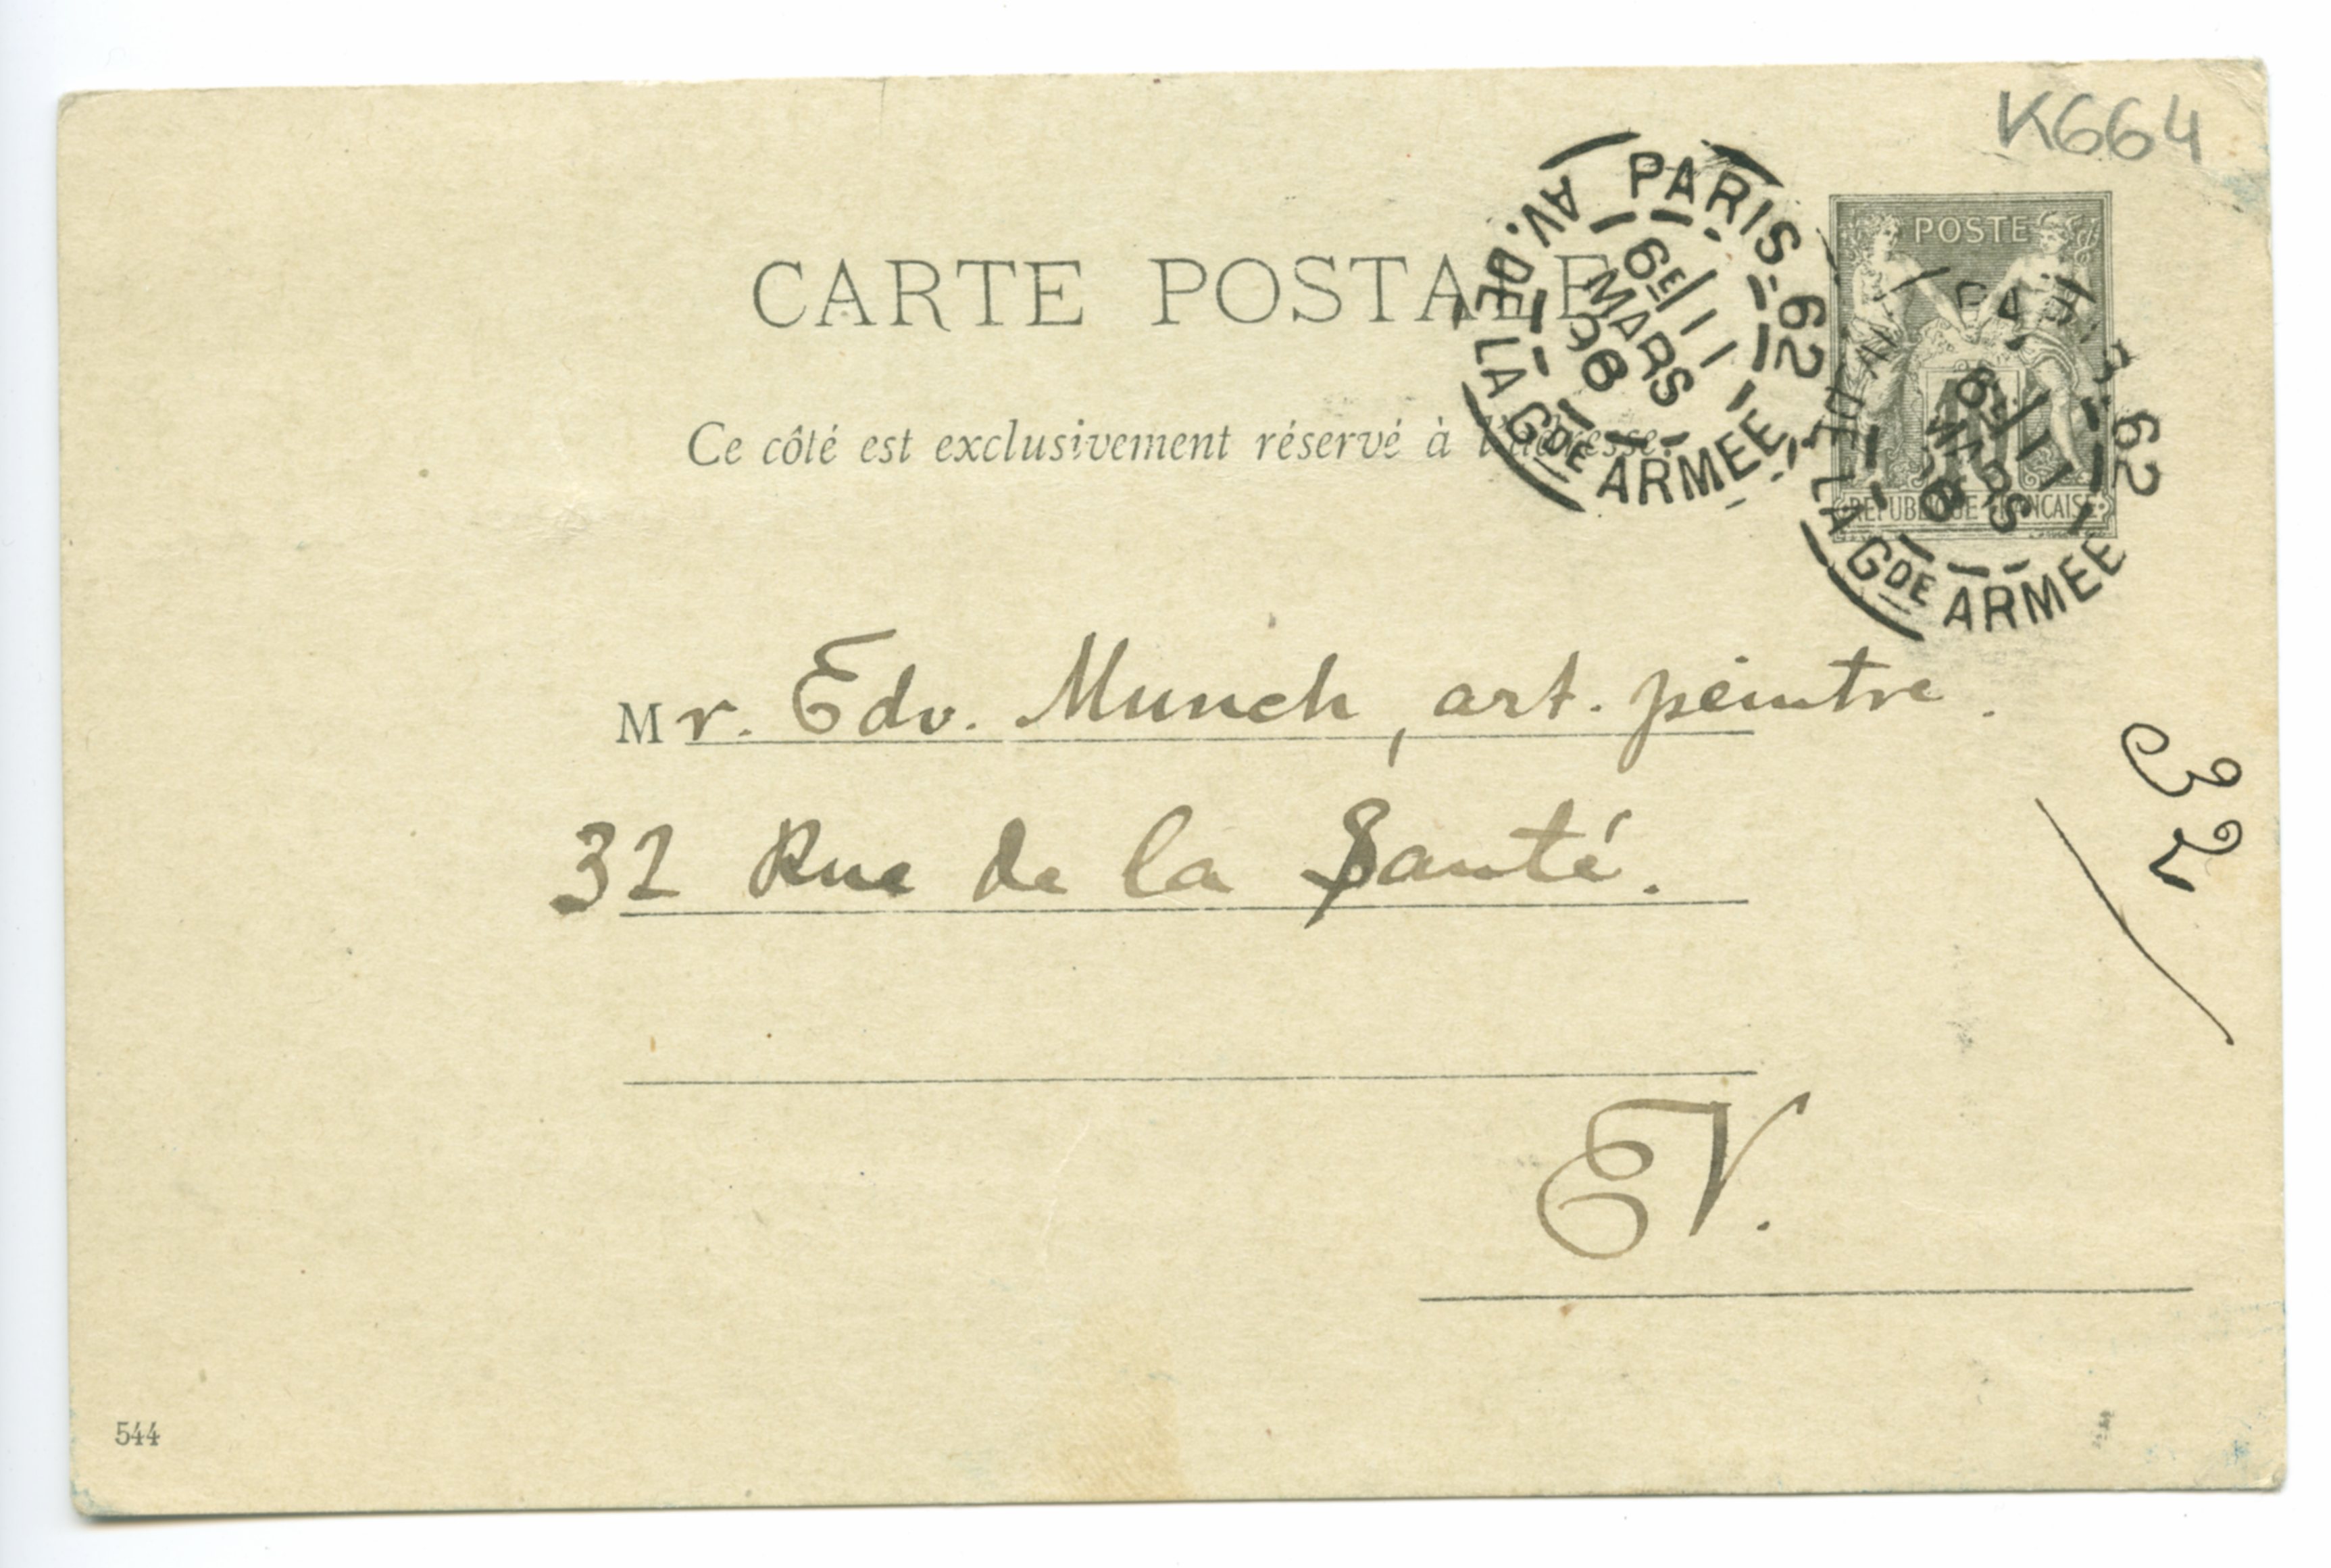 K664
CARTE POSTALE
Ce côté est exclusivement réservé à l'adresse.
PARIS - 62
AV. DE LA GDE ARMEE
6E 11
MARS
98
POSTE
REPUBLIQUE FRANCAISE
PARIS - 62
AV. DE LA GDE ARMEE
6E 11
MARS
Mr. Edv. Munch, art. peintre.
32 Rue de la Santé.
32
EV.
544